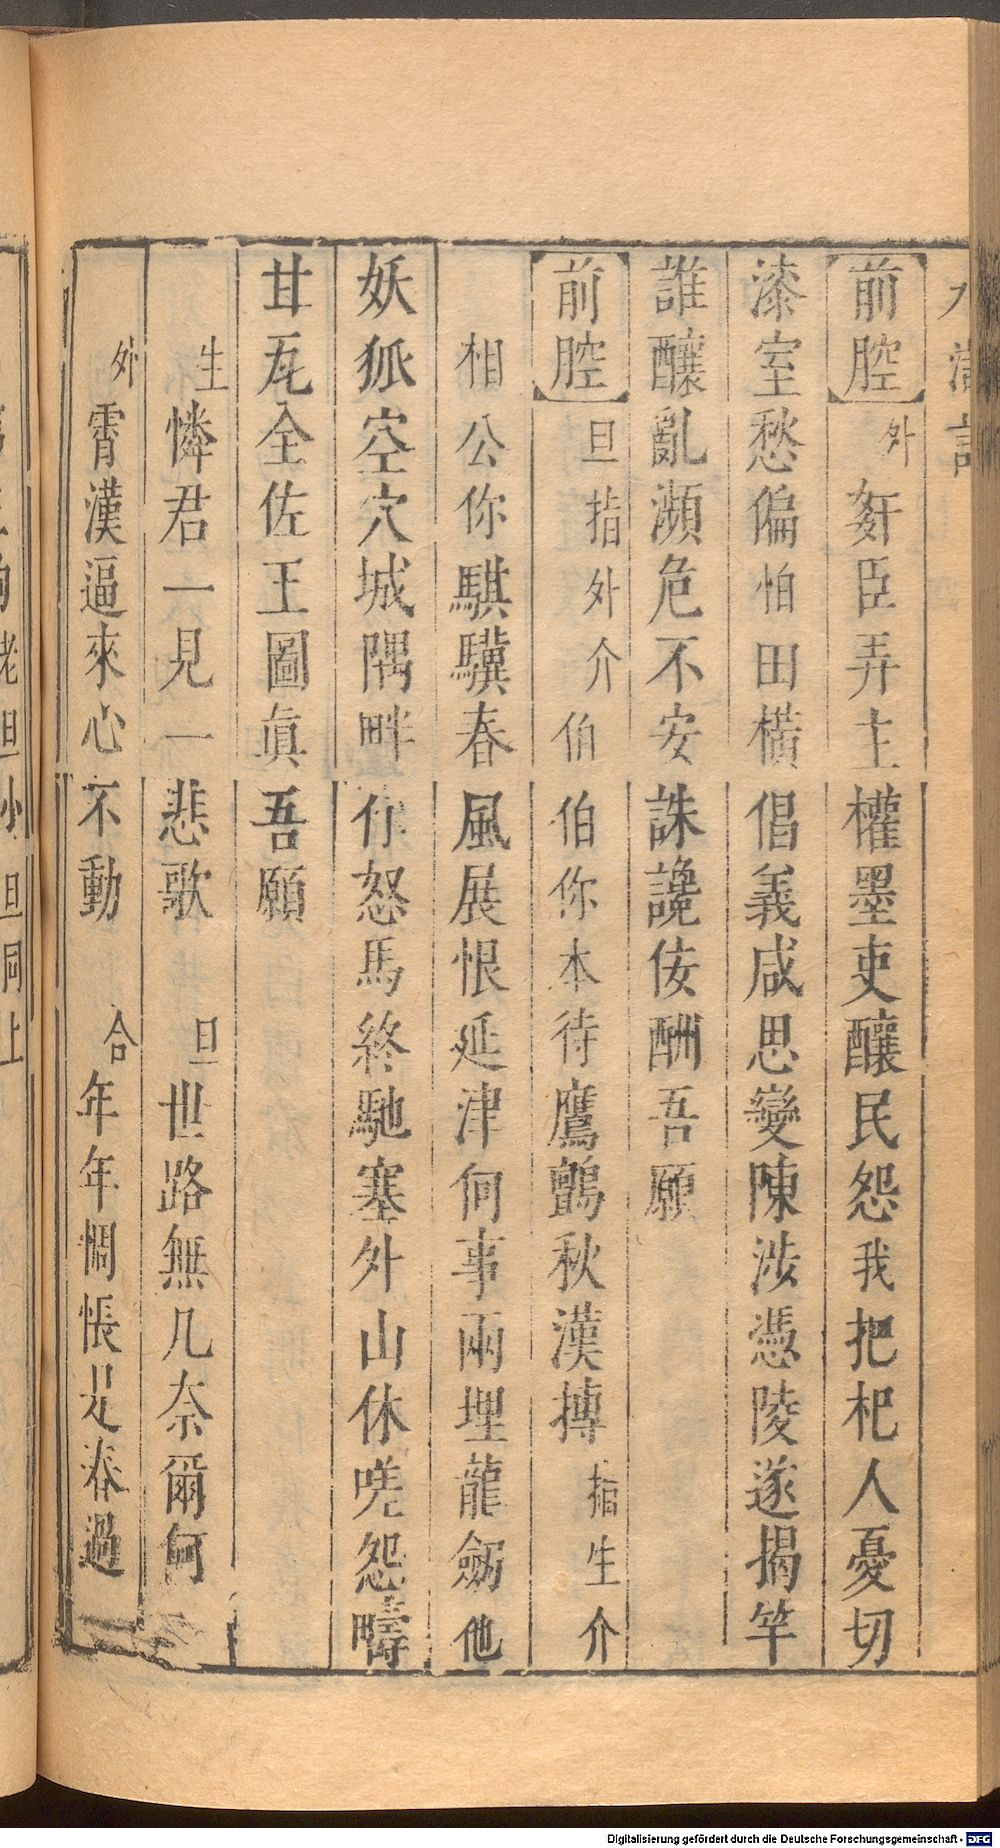 前腔外奸臣弄主權墨吏釀民怨我把杞人憂切
漆室愁偏怕田橫倡義咸思變陳涉憑陵遂揭竿
誰釀亂瀕危不安誅讒佞酬吾願
前腔旦指外介伯伯你本待鷹鸇秋漢摶指生介
相公你騏驥春風展恨延津何事兩埋龍劒他
妖狐空穴城隅畔你怒馬終馳塞外山休嗟怨疇
甘瓦全佐王圖眞吾願
生憐君一見一悲歌旦世路無几奈爾何
外霄漢逼來心不動合年年惆悵是春過
老旦小旦同上
Digitalisierung gefördert durch die Deutsche Forschungsgemeinschaft - DFG